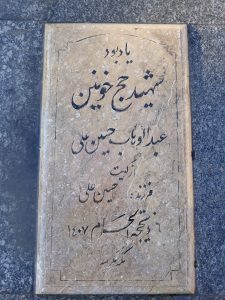 یادبود
شهید حج خونین
عبدالوهاب حسین علی
فرزند: حسین علی
۶ ذیحجه الحرام ۱۴۰۷
مکه مکرمه